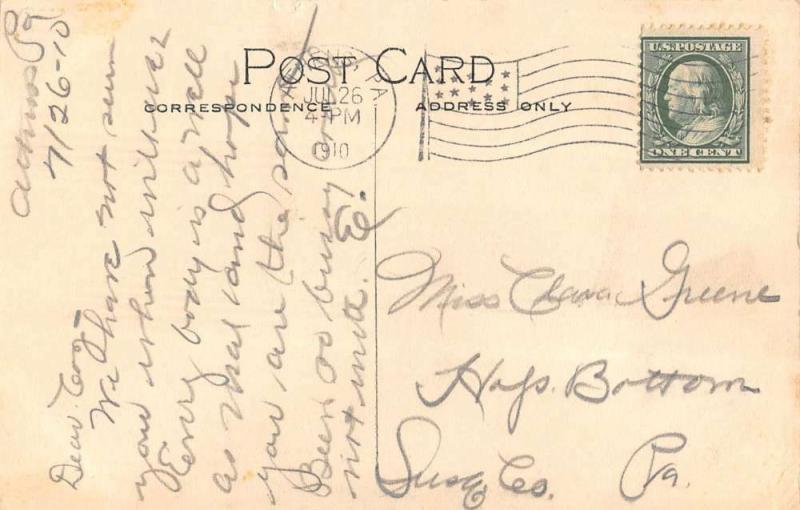 POST CARD
CORRESPONDENCE
ADDRESS ONLY
U.S. POSTAGE
ONE CENT
JUL 26
4-PM
1910
Athens Pa
7/26-10
Dear
We have not seen
you when will
Every body is well
as usual and hope
you are the same
Been so busy
not write. E.
Miss Clara Greene
Hops. Bottom
Susq. Co. Pa.